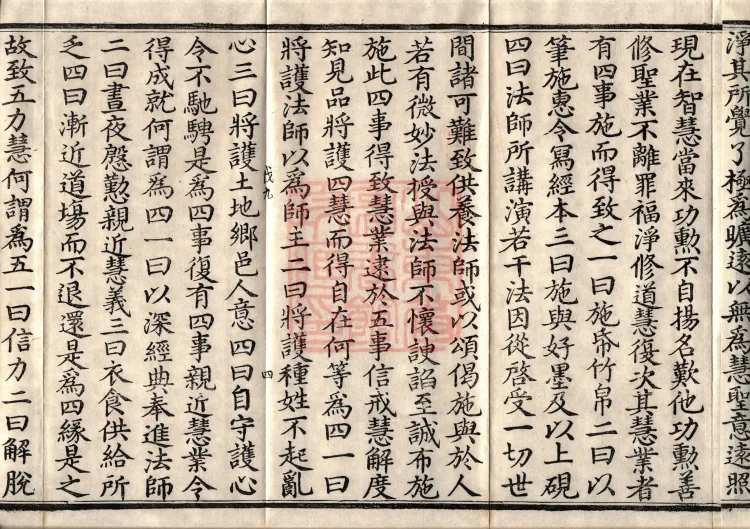 淨其所覺了極爲曠遠以無爲慧聖意遠照
現在智慧當來功勳不自揚名歎他功勳善
修聖業不離罪福淨修道慧復次其慧業者
有四事施而得致之一曰施帋竹帛二曰以
筆施惠令寫經本三曰施與好墨及以上硯
四曰法師所講演若干法因從啓受一切世
間諸可難致供養法師或以頌偈施與於人
若有微妙法授與法師不懷諛諂至誠布施
施此四事得致慧業逮於五事信戒慧解度
知見品將護四慧而得自在何等爲四一曰
將護法師以爲師主二曰將護種姓不起亂
戊九 四
心三曰將護土地鄉邑人意四曰自守護心
令不馳騁是爲四事復有四事親近慧業令
得成就何謂爲四一曰以深經典奉進法師
二曰晝夜慇懃親近慧義三曰衣食供給所
乏四曰漸近道場而不退還是爲四緣是之
故致五力慧何謂爲五一曰信力二曰解脫